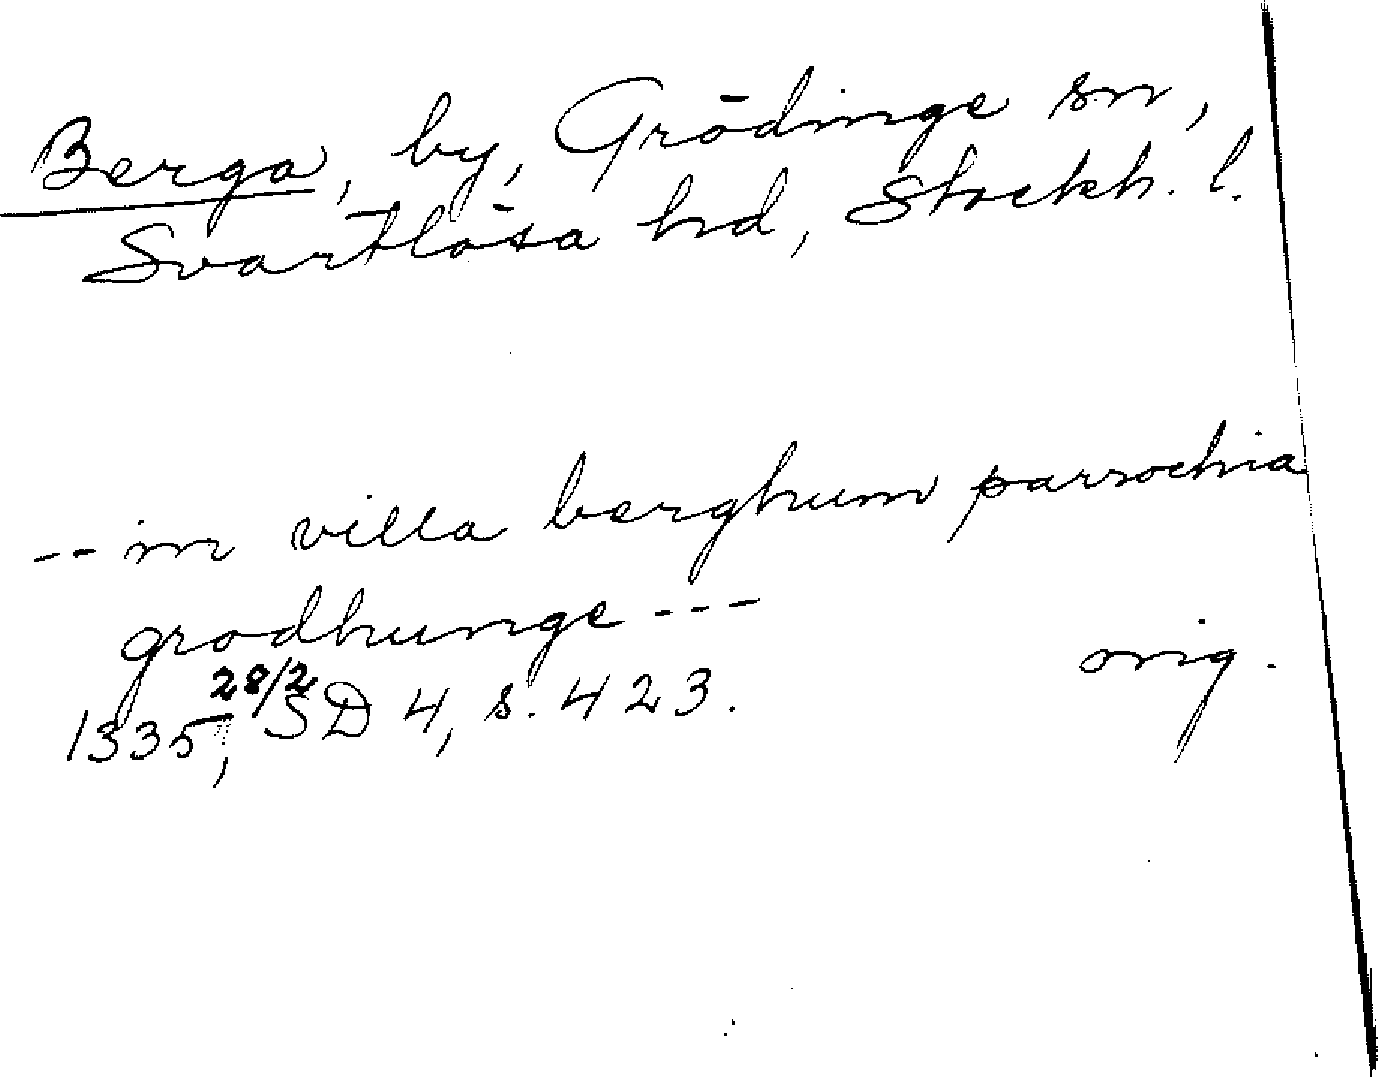 Berga, by, Grödinge sn,
Svartlösa hd, Stockh. l.
-- in villa berghum parrochia
grodhunge ---
orig.
1335 28/2, SD 4, s. 423.